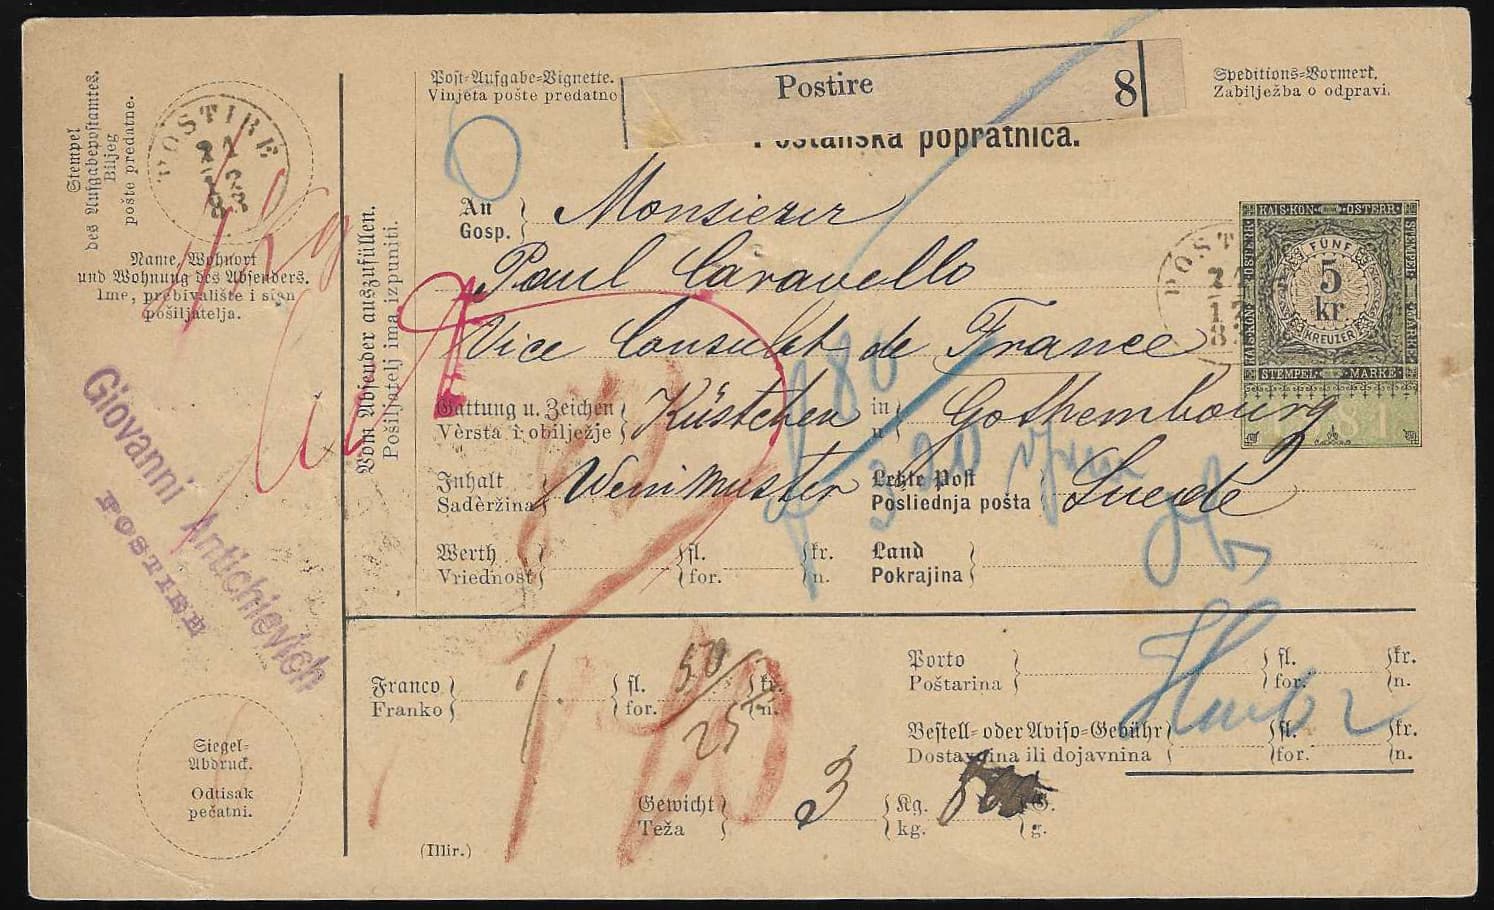 Post-Aufgabe-Vignette.
Vinjeta pošte predatne
Postire 8
Speditions-Vormerk.
Zabilježba o odpravi.
Poštanska popratnica.
Stempel
des Aufgabepostamtes.
Biljeg
pošte predatne.
POSTIRE
Name, Wohnort
und Wohnung des Absenders.
Ime, prebivalište i stan
pošiljatelja.
Giovanni Antichievich
POSTIRE
Siegel-
Abdruck.
Odtisak
pečatni.
Vom Absender auszufüllen.
Pošiljatelj ima izpuniti.
An
Gosp.
Monsieur
Paul Caravello
Vice Consulat de France
Gattung u. Zeichen
Vèrsta i obilježje
Küstchen
in
u
Gothembourg
Inhalt
Sadèržina
Weinmuster
Letzte Post
Posliednja pošta
Suede
Werth
Vriednost
fl.
for.
kr.
n.
Land
Pokrajina
KAIS. KÖN. ÖSTERR.
FÜNF
5
kr
KREUZER
STEMPEL MARKE
1881
POST
21
12
80
320
Franco
Franko
1.
fl.
for.
50
25
kr.
n.
Porto
Poštarina
fl.
for.
kr.
n.
Bestell- oder Aviso-Gebühr
Dostavnina ili dojavnina
fl.
for.
kr.
n.
Gewicht
Teža
3
Kg.
kg.
G.
g.
(Illir.)